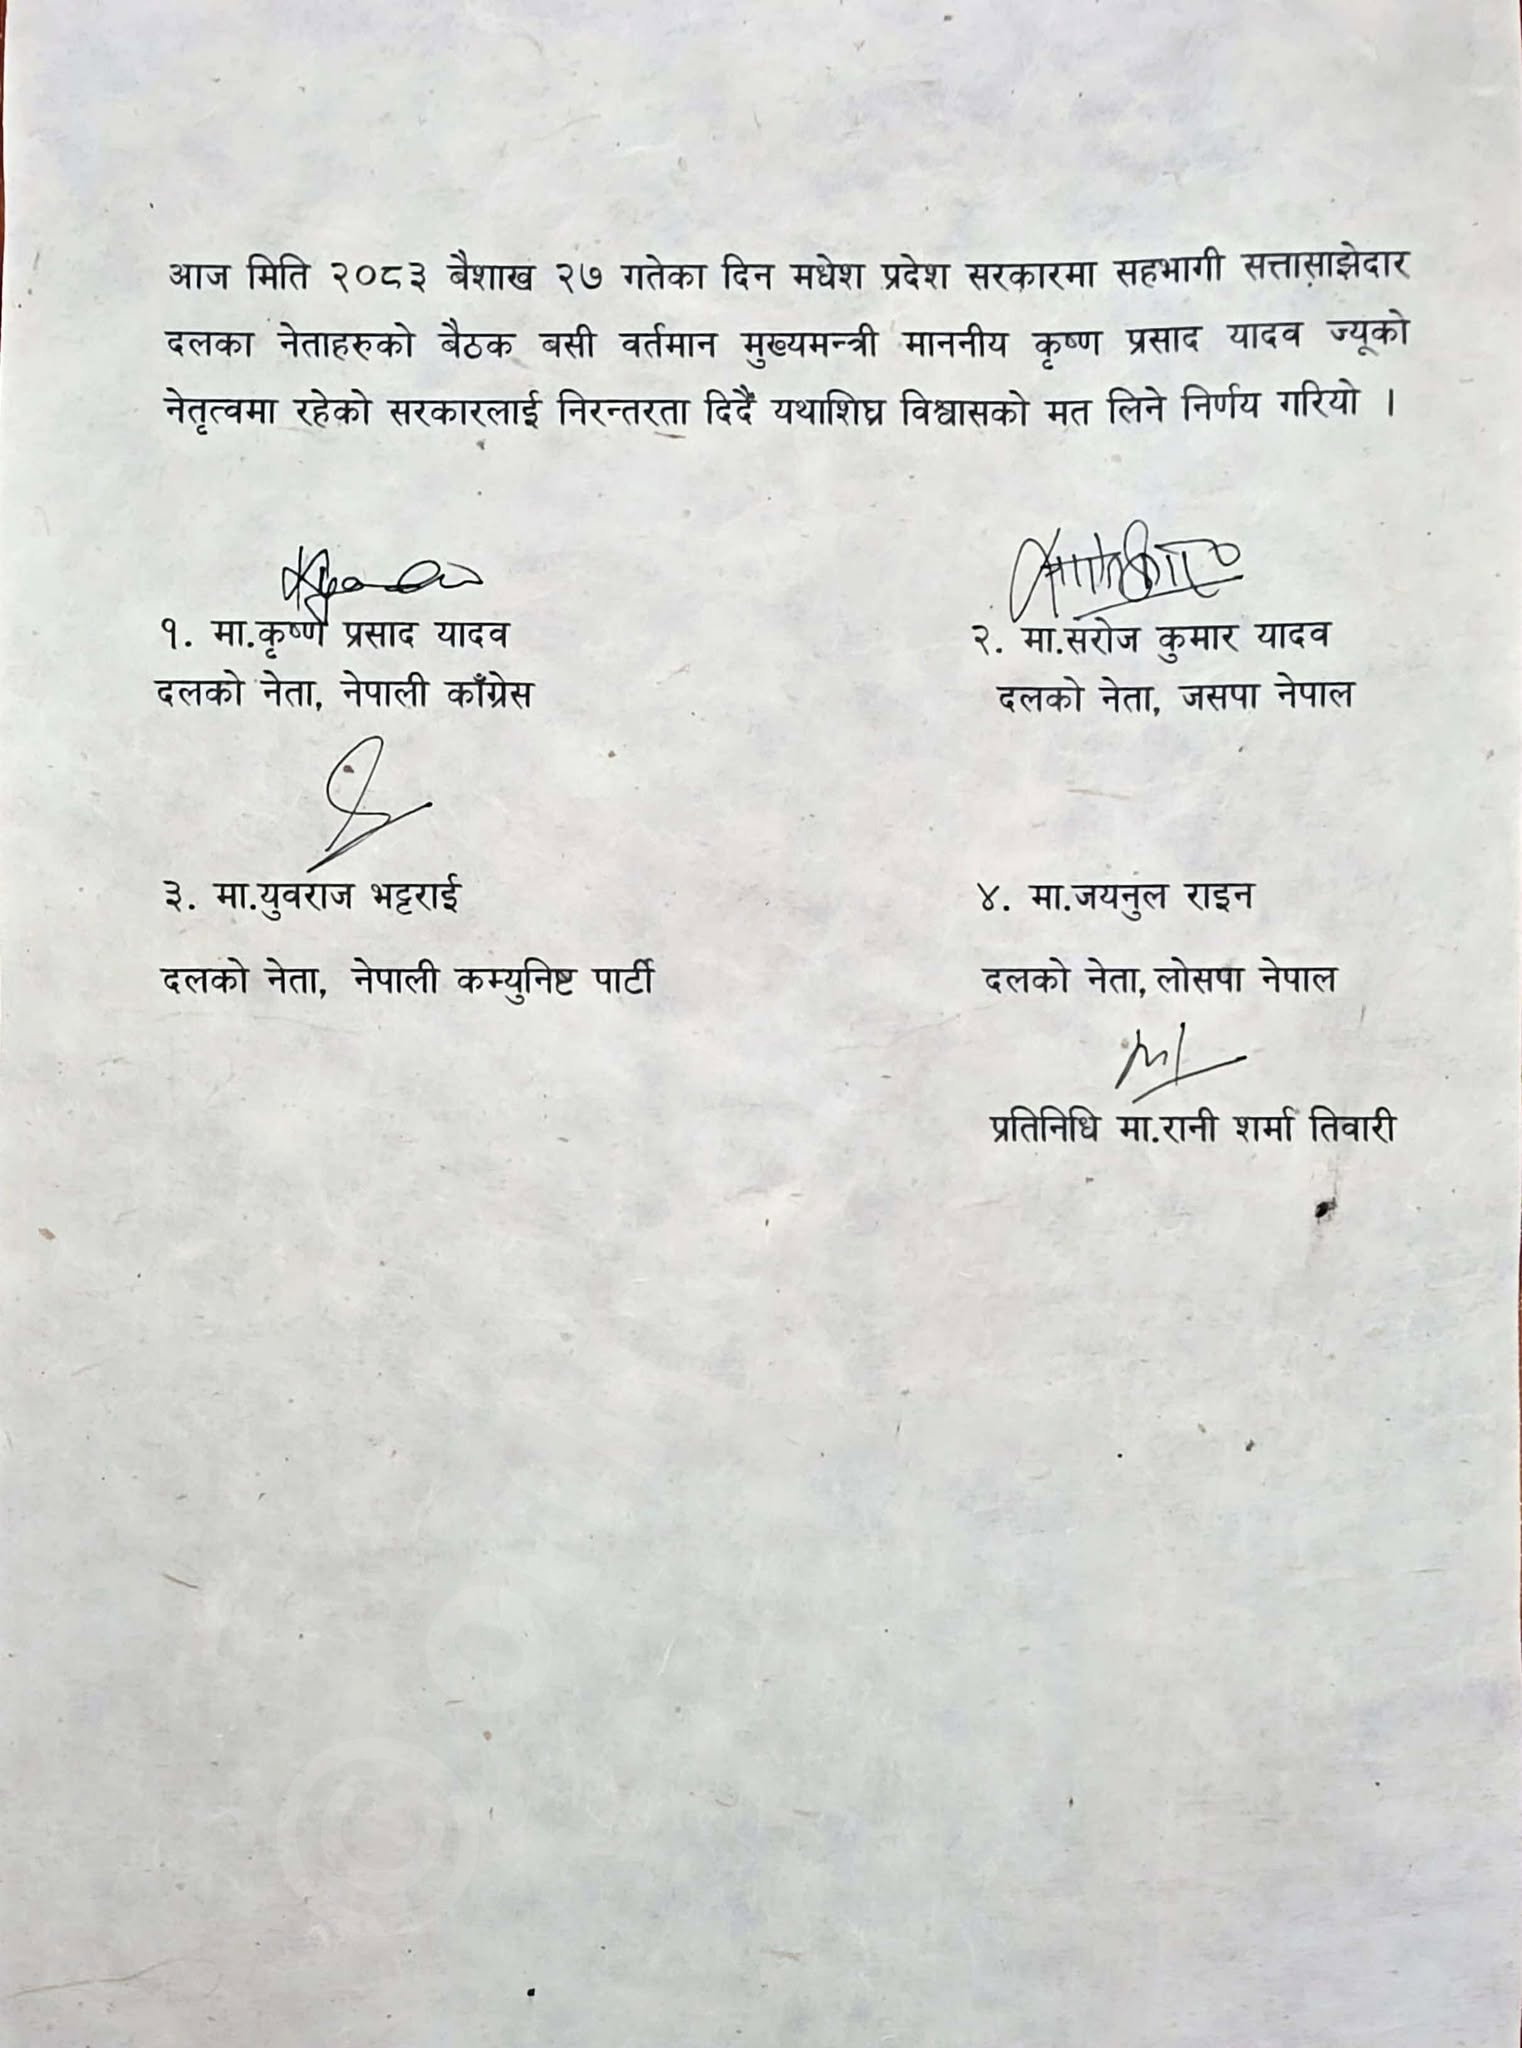 आज मिति २०८३ बैशाख २७ गतेका दिन मधेश प्रदेश सरकारमा सहभागी सत्तासाझेदार
दलका नेताहरुको बैठक बसी वर्तमान मुख्यमन्त्री माननीय कृष्ण प्रसाद यादव ज्यूको
नेतृत्वमा रहेको सरकारलाई निरन्तरता दिदैं यथाशिघ्र विश्वासको मत लिने निर्णय गरियो ।
१. मा.कृष्ण प्रसाद यादव
दलको नेता, नेपाली काँग्रेस
२. मा.सरोज कुमार यादव
दलको नेता, जसपा नेपाल
३. मा.युवराज भट्टराई
दलको नेता, नेपाली कम्युनिष्ट पार्टी
४. मा.जयनुल राइन
दलको नेता, लोसपा नेपाल
प्रतिनिधि मा.रानी शर्मा तिवारी